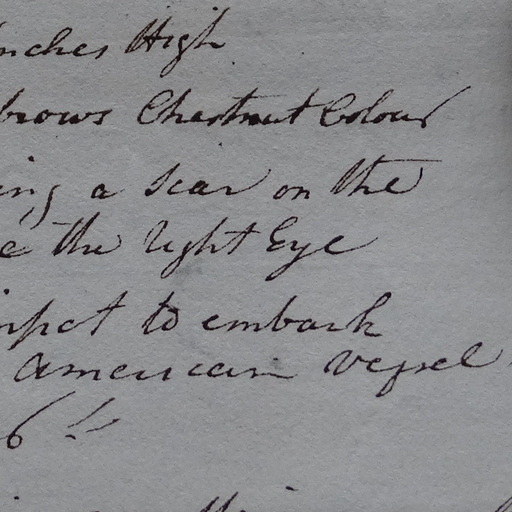 nches High
brows Chestnut Colour
ing a Scar on the
e the right Eye
to embark
American vessel
6